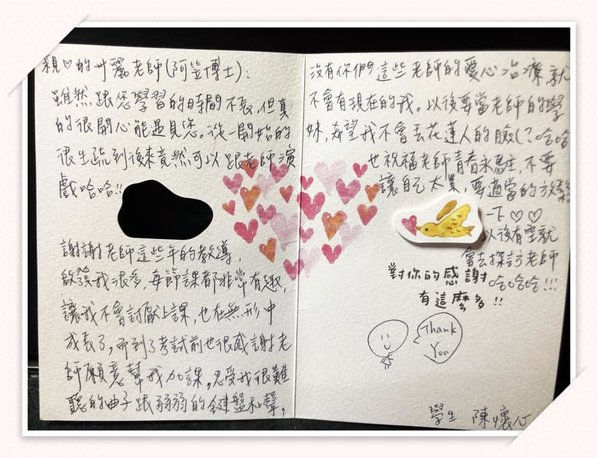 親♡的卅麗老師(阿笠博士):
雖然跟您學習的時間不長,但真
的很開心能遇見您。從一開始的
很生疏到後來竟然可以跟老師演
戲哈哈!!
謝謝老師這些年的教導,
啟發我很多,每節課都非常有趣,
讓我不會討厭上課,也在無形中
成長了,而到了考試前也很感謝老
師願意幫我加課,忍受我很難
聽的曲子跟弱弱的鍵盤和聲,
沒有你們這些老師的愛心治療就
不會有現在的我。以後要當老師的學
妹,希望我不會丟花蓮人的臉(?哈哈
也祝福老師青春永駐,不要
讓自己太累,要適當的放鬆
一下♡♡
以後有空就
會去探訪老師
哈哈哈!!!
對你的感謝
有這麼多!!
Thank
You
學生 陳懷心